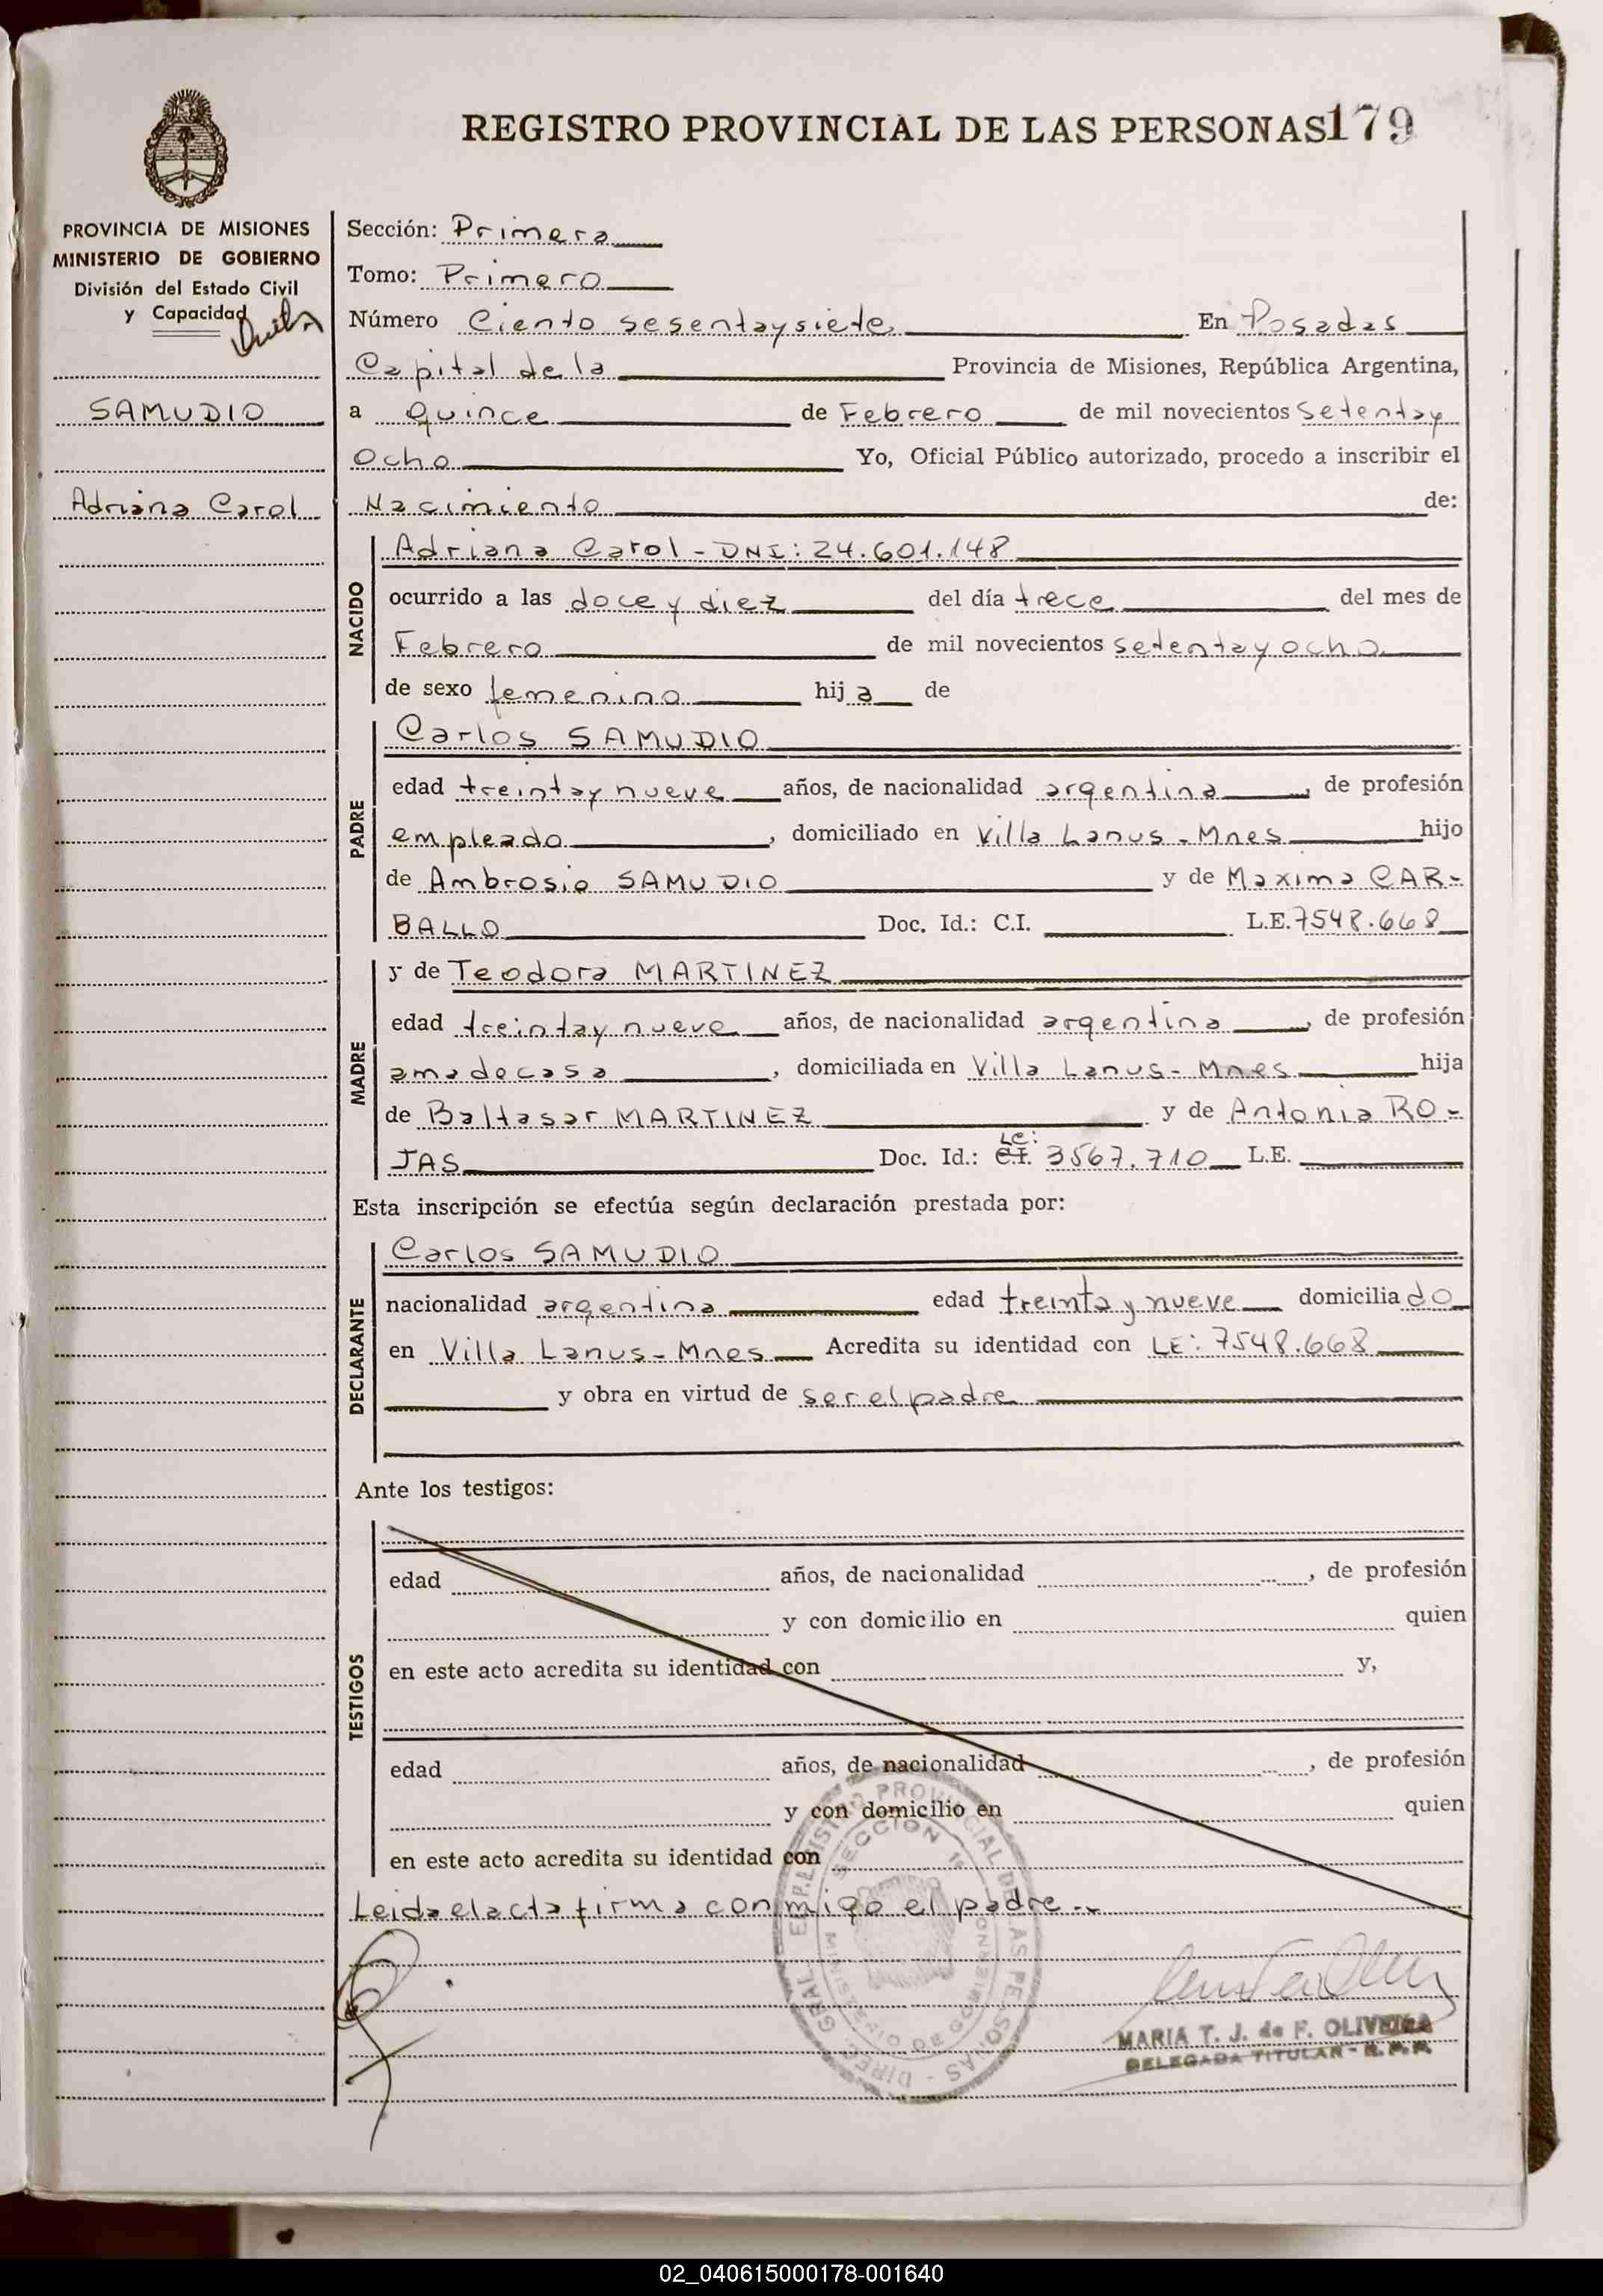 REGISTRO PROVINCIAL DE LAS PERSONAS 179
PROVINCIA DE MISIONES
MINISTERIO DE GOBIERNO
División del Estado Civil
y Capacidad
SAMUDIO
Adriana Carol
Sección: Primera
Tomo: Primero
Número Ciento sesentaysiete En Posadas
Capital de la Provincia de Misiones, República Argentina,
a quince de Febrero de mil novecientos setentay
ocho Yo, Oficial Público autorizado, procedo a inscribir el
Nacimiento de:
NACIDO
Adriana Carol - DNI: 24.601.148
ocurrido a las doce y diez del día trece del mes de
Febrero de mil novecientos setentayocho
de sexo femenino hija de
PADRE
Carlos SAMUDIO
edad treintay nueve años, de nacionalidad argentina, de profesión
empleado, domiciliado en Villa Lanus - Mnes hijo
de Ambrosio SAMUDIO y de Maxima CAR-
BALLO Doc. Id.: C.I. L.E. 7548.668
MADRE
y de Teodora MARTINEZ
edad treintay nueve años, de nacionalidad argentina, de profesión
ama de casa, domiciliada en Villa Lanus - Mnes hija
de Baltasar MARTINEZ y de Antonia RO-
JAS Doc. Id.: C.I. LC: 3567.710 L.E.
Esta inscripción se efectúa según declaración prestada por:
DECLARANTE
Carlos SAMUDIO
nacionalidad argentina edad treinta y nueve domiciliado
en Villa Lanus - Mnes Acredita su identidad con LE: 7548.668
y obra en virtud de ser el padre
Ante los testigos:
TESTIGOS
edad años, de nacionalidad , de profesión
y con domicilio en quien
en este acto acredita su identidad con y,
edad años, de nacionalidad , de profesión
y con domicilio en quien
en este acto acredita su identidad con
Leida el acta firma conmigo el padre.-
DIREC. GRAL. REGISTRO PROVINCIAL DE LAS PERSONAS
SECCION 1ª
MINISTERIO DE GOBIERNO
MARIA T. J. de F. OLIVEIRA
DELEGADA TITULAR - R. P. P.
02_040615000178-001640